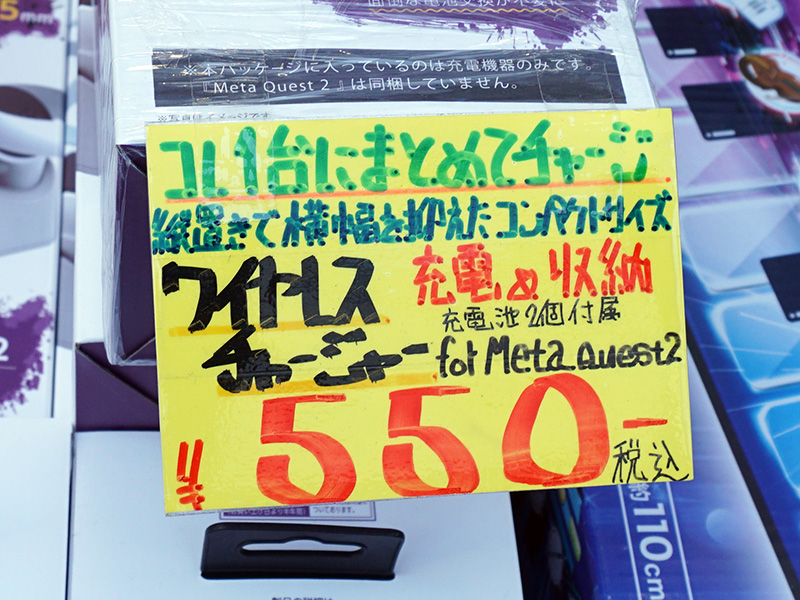 5mm
※本パッケージに入っているのは充電機器のみです。
『Meta Quest 2』は同梱していません。
コレ1台にまとめてチャージ
縦置きで横幅を抑えたコンパクトサイズ
ワイヤレス
チャージャー
充電&収納
充電池2個付属
for Meta Quest2
!!
550-
税込
2
約110cm